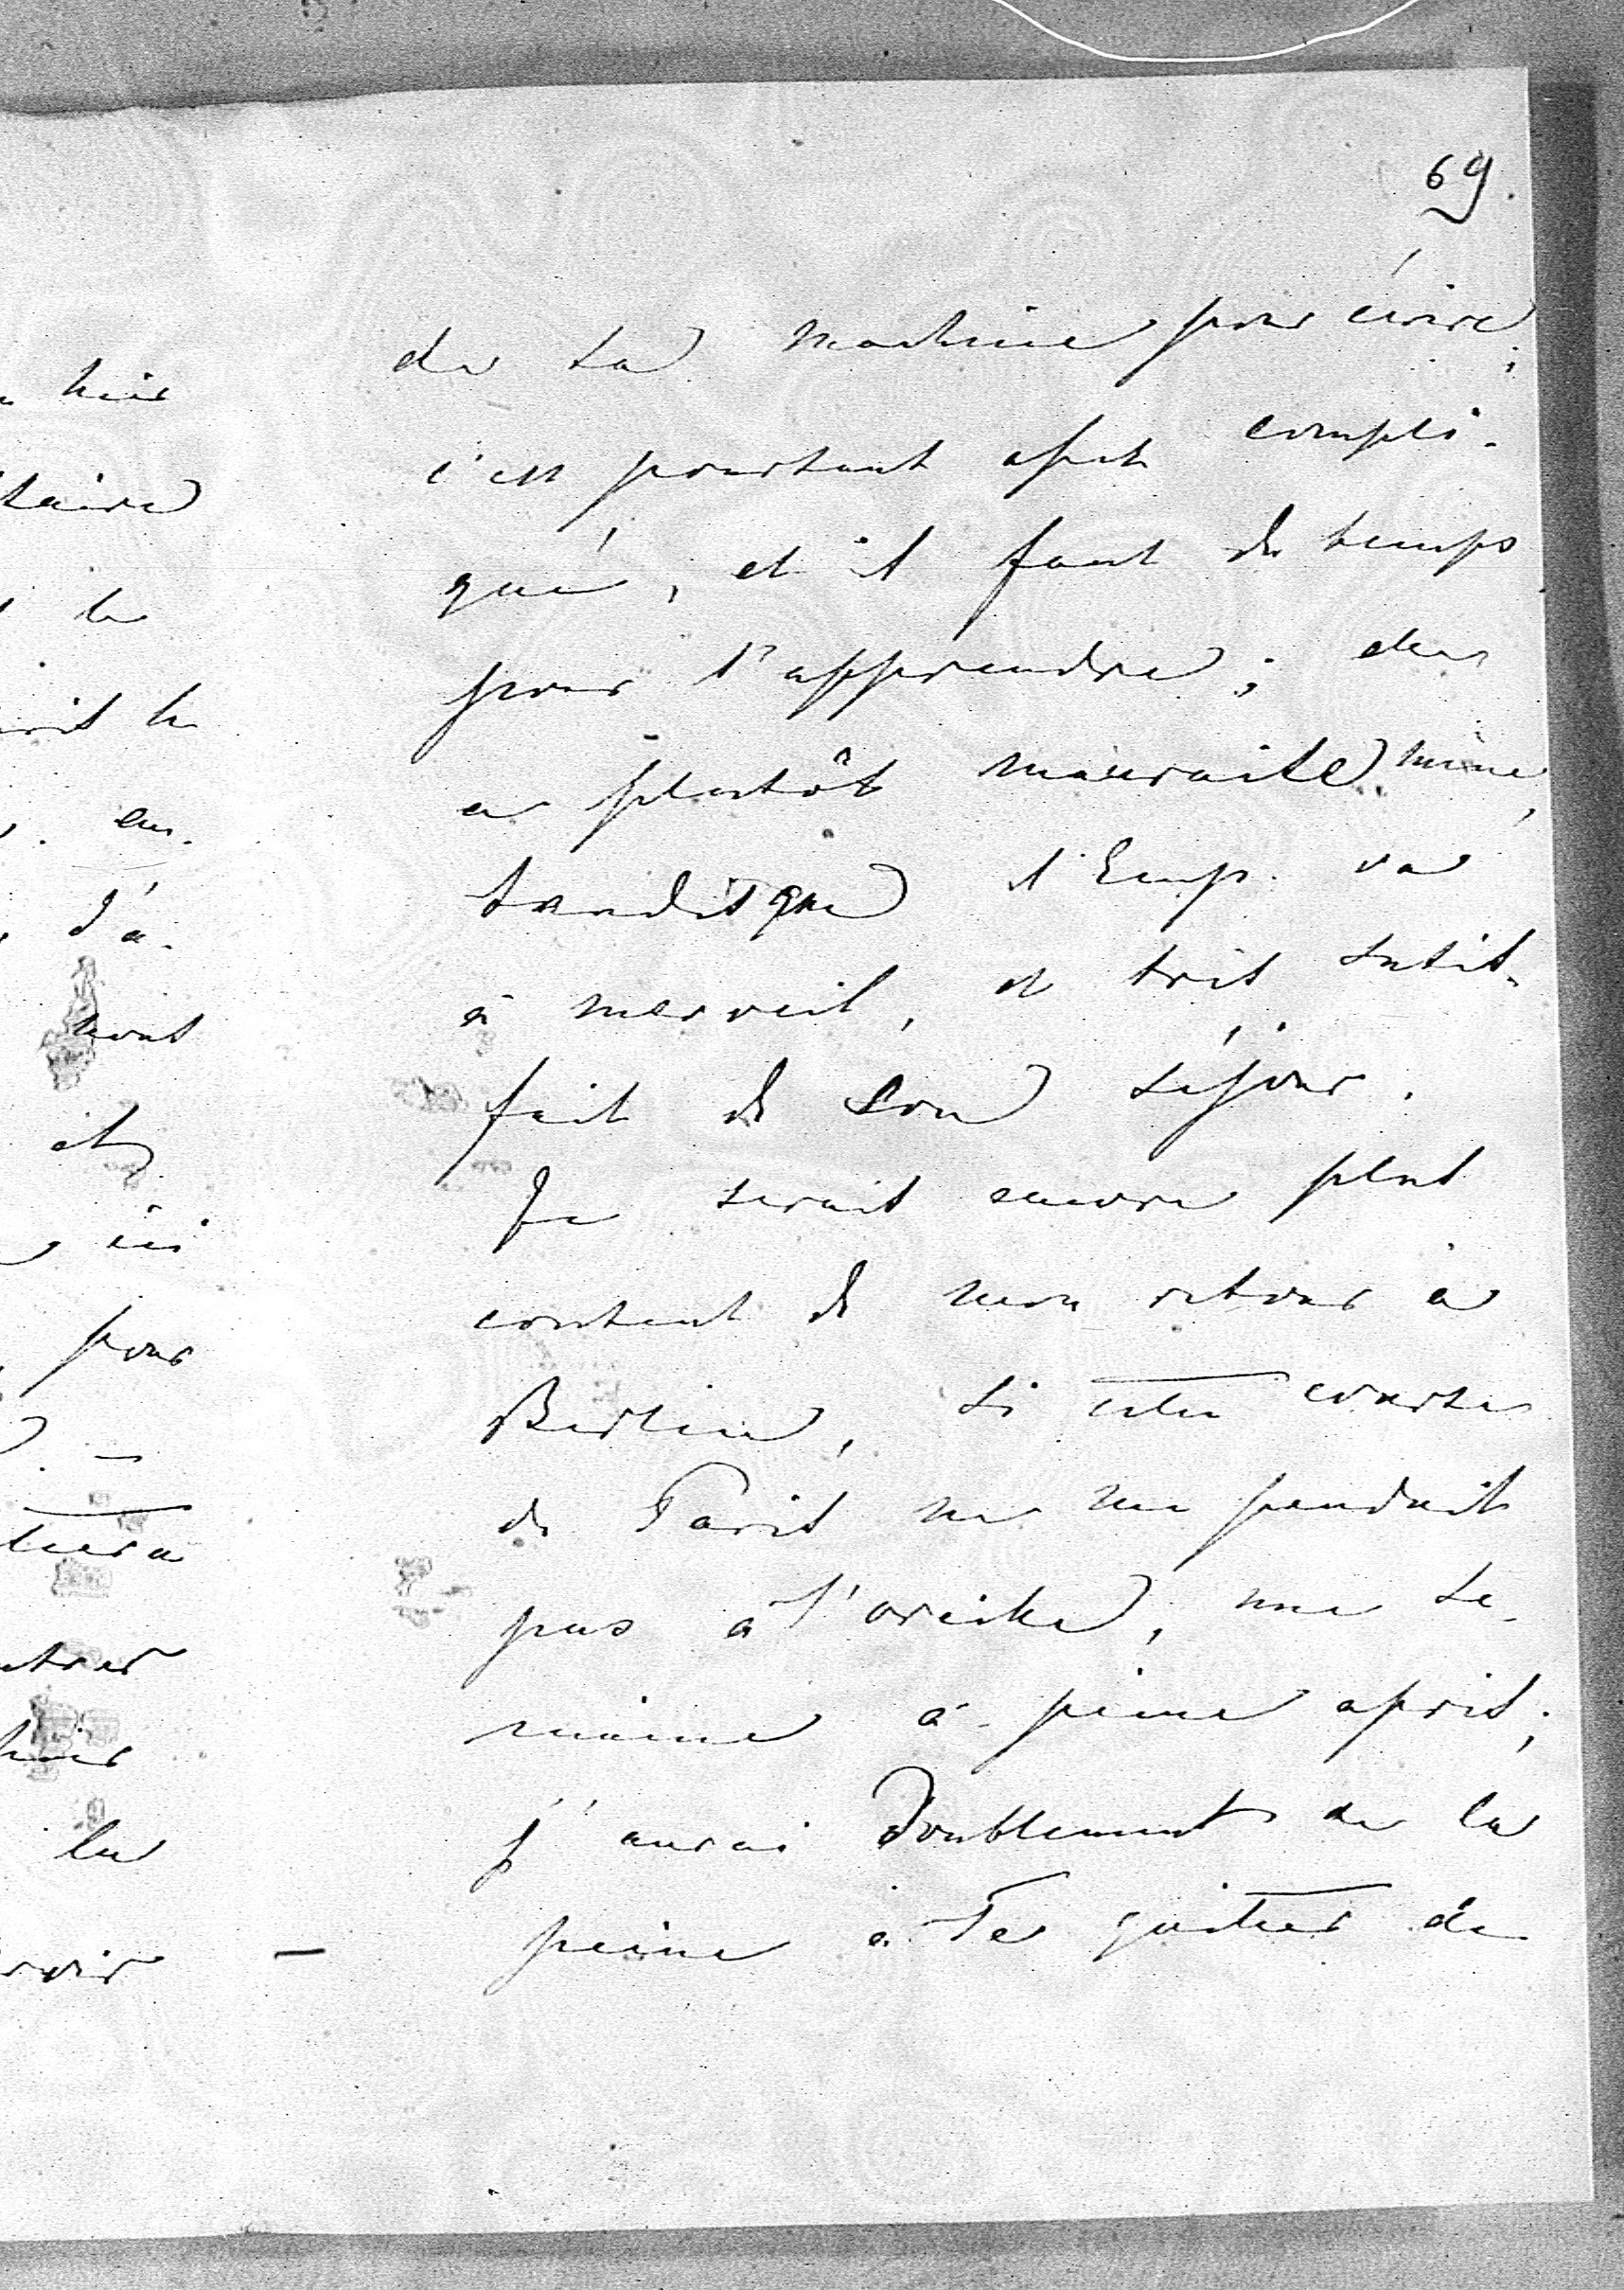 69.
de sa machine pour écrire;
c'est pourtant assez compli-
qué, et il faut du temps
pour l'apprendre; elle
a plutôt mauvaise mine,
tandisque l'Emp. va
à merveil, et très satis-
fait de son séjour.
Je serais encore plus
content de mon retour à
Berlin, si cette course
de Paris ne me pendait
pas à l'oreille, une se-
maine à peine après;
j'aurai doublement de la
peine à Te quitter de
hier
taire
le
la
en-
d'a-
vous
et
ici
pour
—
tera
hier
la
voir —